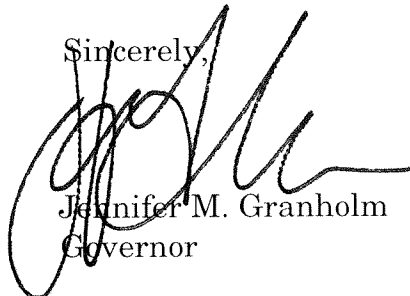 Sincerely,
Jennifer M. Granholm
Governor